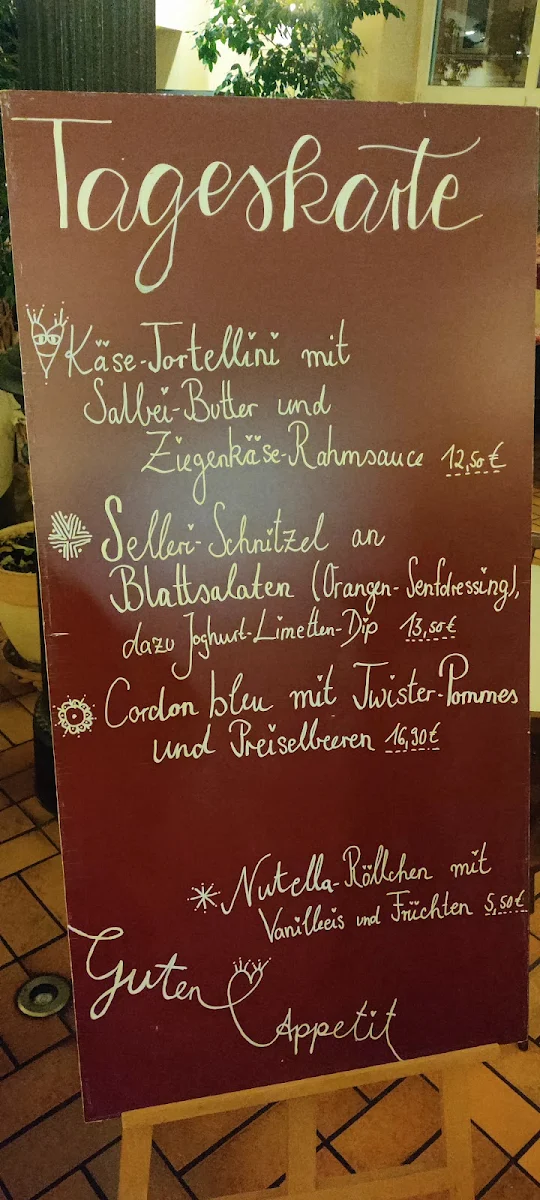 Tageskarte
Käse-Tortellini mit
Salbei-Butter und
Ziegenkäse-Rahmsauce 12,50 €
Selleri-Schnitzel an
Blattsalaten (Orangen-Senfdressing),
dazu Joghurt-Limetten-Dip 13,50 €
Cordon bleu mit Twister-Pommes
und Preiselbeeren 16,90 €
Nutella-Röllchen mit
Vanilleeis und Früchten 5,50 €
Guten
Appetit